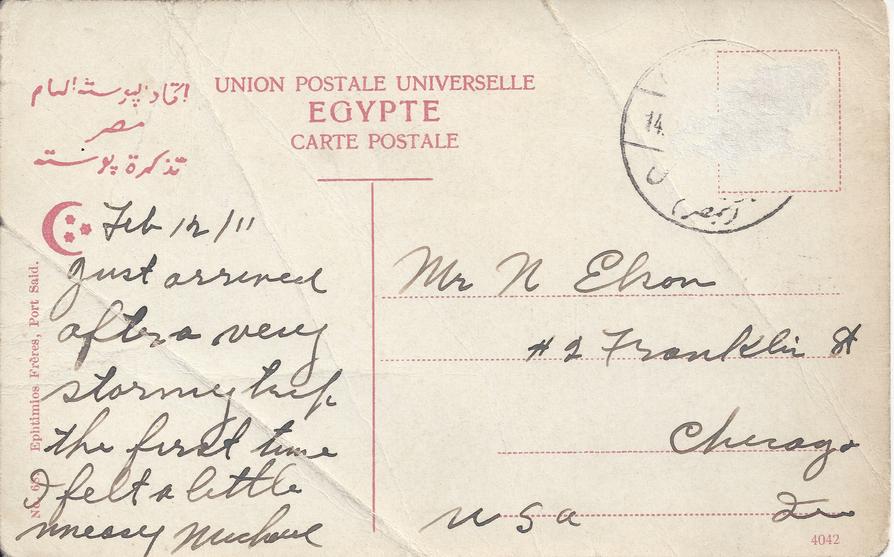 اتحاد پوسته العام
مصر
تذكرة پوسته
UNION POSTALE UNIVERSELLE
EGYPTE
CARTE POSTALE
14.
Feb 12/11
Just arrived
after a very
stormy trip
the first time
I felt a little
unneasy Michael
Mr N Elson
# 2 Franklin St
Chicago
U S a
Ephtimios Frères, Port Said.
4042